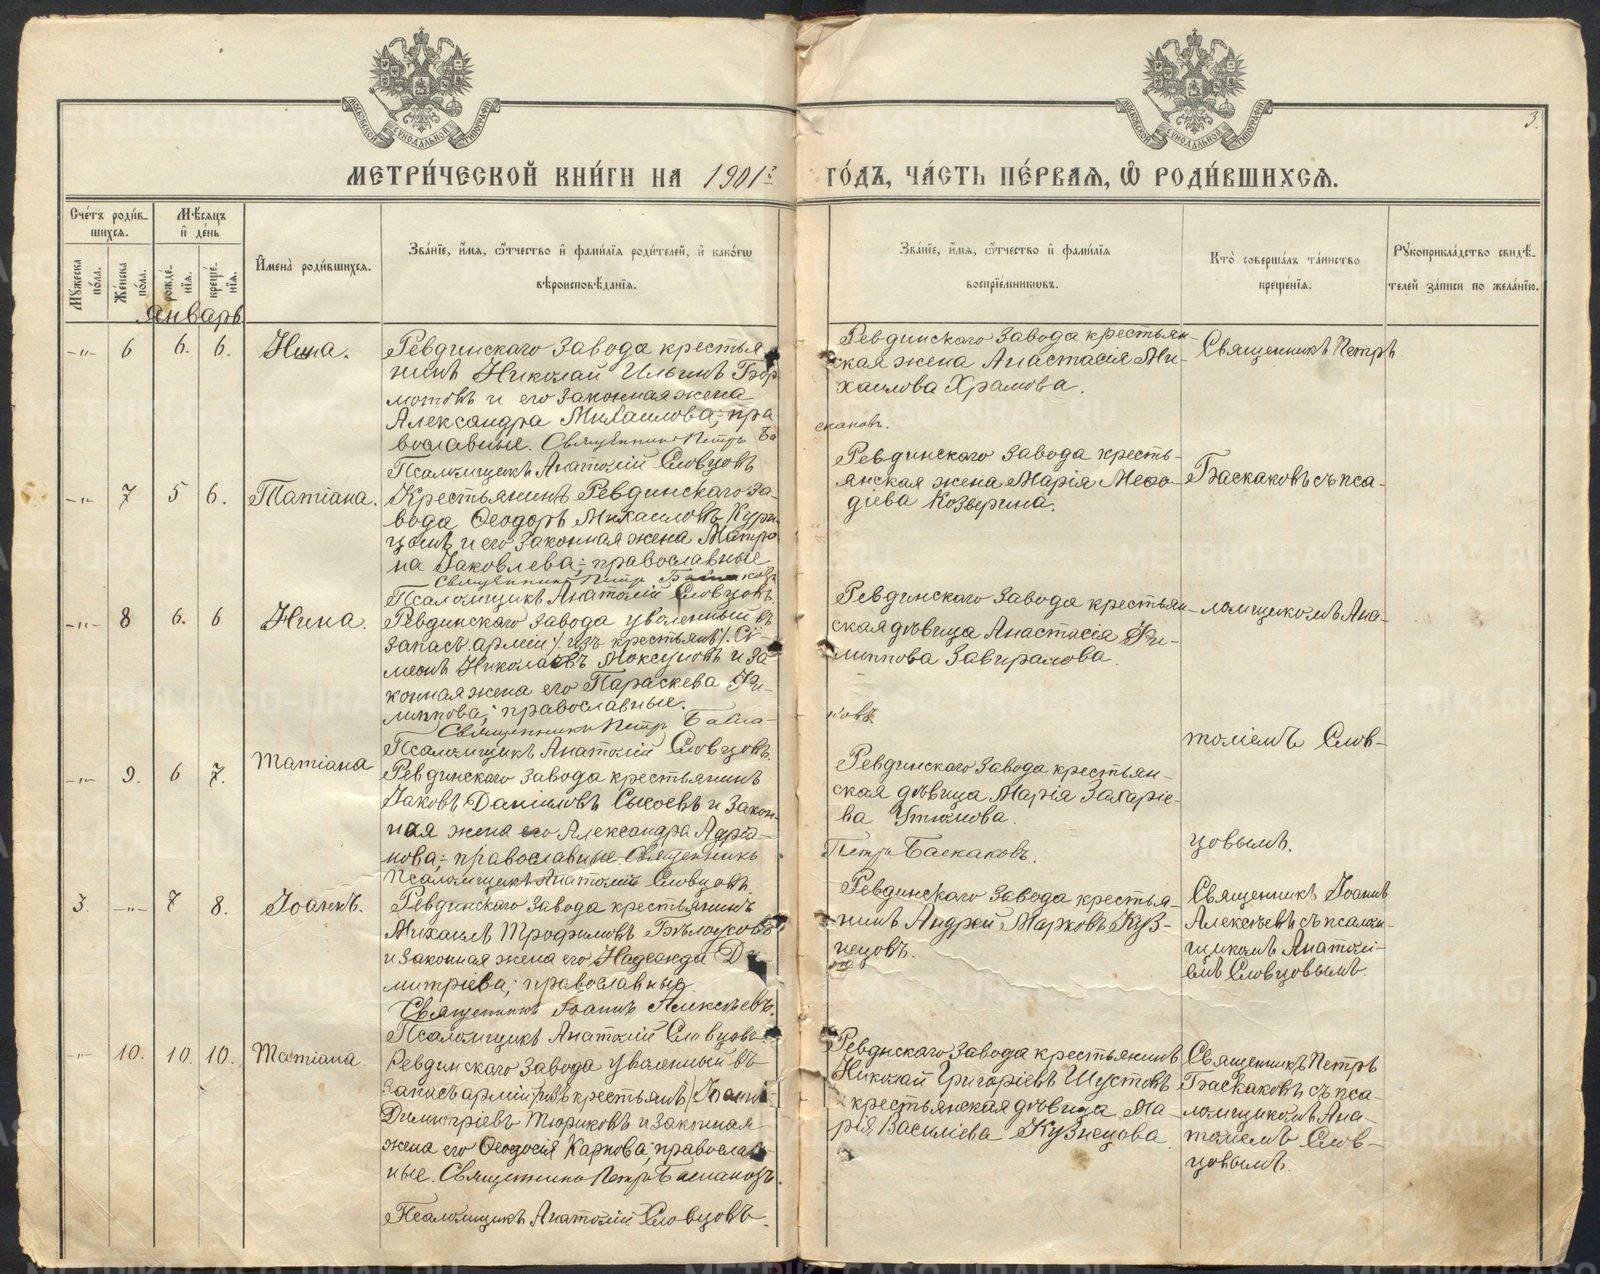 МОСКОВСКОЙ СѴНОДАЛЬНОЙ ТИПОГРАФІИ
МОСКОВСКОЙ СѴНОДАЛЬНОЙ ТИПОГРАФІИ
3.
МЕТРИ́ЧЕСКОЙ КНИ́ГИ НА 1901 г.
ГО́ДЪ, ЧА́СТЬ ПЕ́РВАѦ, Ѡ РОДИ́ВШИХСѦ.
Сче́тъ роди́в-
шихсѧ.
Мѣ́сѧцъ
и҆ де́нь
Мꙋ́жеска по́ла.
Же́нска по́ла.
рожде́-
нїѧ.
креще́-
нїѧ.
И҆мена̀ роди́вшихсѧ.
Зва́нїе, и҆́мѧ, ѻ҆́тчество и҆ фами́лїѧ роди́телей, и҆ како́гѡ
вѣроисповѣ́данїѧ.
Зва́нїе, и҆́мѧ, ѻ҆́тчество и҆ фами́лїѧ
воспрїе́мникѡвъ.
Кто̀ соверша́лъ та́инство
креще́нїѧ.
Рꙋкоприкла́дство свидѣ́-
телей за́писи по жела́нїю.
Январь
-"- 6 6. 6. Нина.
Ревдинскаго завода крестья
нинъ Николай Ильинъ
мотовъ и его законная жена
Александра Михаилова; пра
вославные. Священникъ Петръ Ба
Псаломщикъ Анатолій Словцовъ
Ревдинскаго завода крестьян-
ская жена Анастасія Ми-
хаилова Храмова.
скаковъ.
Священникъ Петръ
-"- 7 5 6. Татіана.
Крестьянинъ Ревдинскаго за-
вода Ѳеодоръ Михаиловъ
и его законная жена Матро
на Іаковлева; православные
Священникъ Петръ Баскаковъ
Псаломщикъ Анатолій Словцовъ
Ревдинскаго завода кресть-
янская жена Марія Меѳо-
діева Козырина.
Баскаковъ съ пса-
-"- 8 6. 6 Нина.
Ревдинскаго завода уволенный въ
запасъ арміи /изъ крестьянъ/ Си-
меонъ Николаевъ Моксуновъ и за
конная жена его Параскева Фи-
липпова; православные.
Священникъ Петръ Баска-
Псаломщикъ Анатолій Словцовъ.
Ревдинскаго завода крестьян
ская дѣвица Анастасія Фи-
липпова Завирамова.
ковъ
ломщикомъ Ана-
толіемъ Слов-
-"- 9. 6 7. Татіана
Ревдинскаго завода крестьянинъ
Іаковъ Даніиловъ Сысоевъ и закон-
ная жена его Александра Адріа-
нова; православные. Священникъ
Псаломщикъ Анатолій Словцовъ.
Ревдинскаго завода крестьян-
ская дѣвица Марія Захаріе-
ва Утюмова.
Петръ Баскаковъ.
цовымъ.
3. -"- 7 8. Іоаннъ.
Ревдинскаго завода крестьянинъ
Михаилъ Трофимовъ Бѣлоусовъ
и законная жена его Надежда Ди
митріева; православные.
Священникъ Іоаннъ Алексѣевъ.
Псаломщикъ Анатолій Словцовъ.
Ревдинскаго завода крестья-
нинъ Андрей Марковъ Куз-
нецовъ.
Священникъ Іоаннъ
Алексѣевъ съ псалом-
щикомъ Анатолі-
емъ Словцовымъ
-"- 10. 10. 10. Татіана.
Ревдинскаго завода уволенный въ
запасъ арміи /изъ крестьянъ/ Іоаннъ
Димитріевъ Тюриковъ и законная
жена его Ѳеодосія Карпова; православ
ные. Священникъ Петръ Баскаковъ.
Псаломщикъ Анатолій Словцовъ.
Ревднскаго завода крестьянинъ
Николай Григоріевъ Шустовъ
крестьянская дѣвица Ма-
рія Василіева Кузнецова.
Священникъ Петръ
Баскаковъ съ пса-
ломщикомъ Ана-
толіемъ Слов-
цовымъ.
METRIKI.GASO-URAL.RU